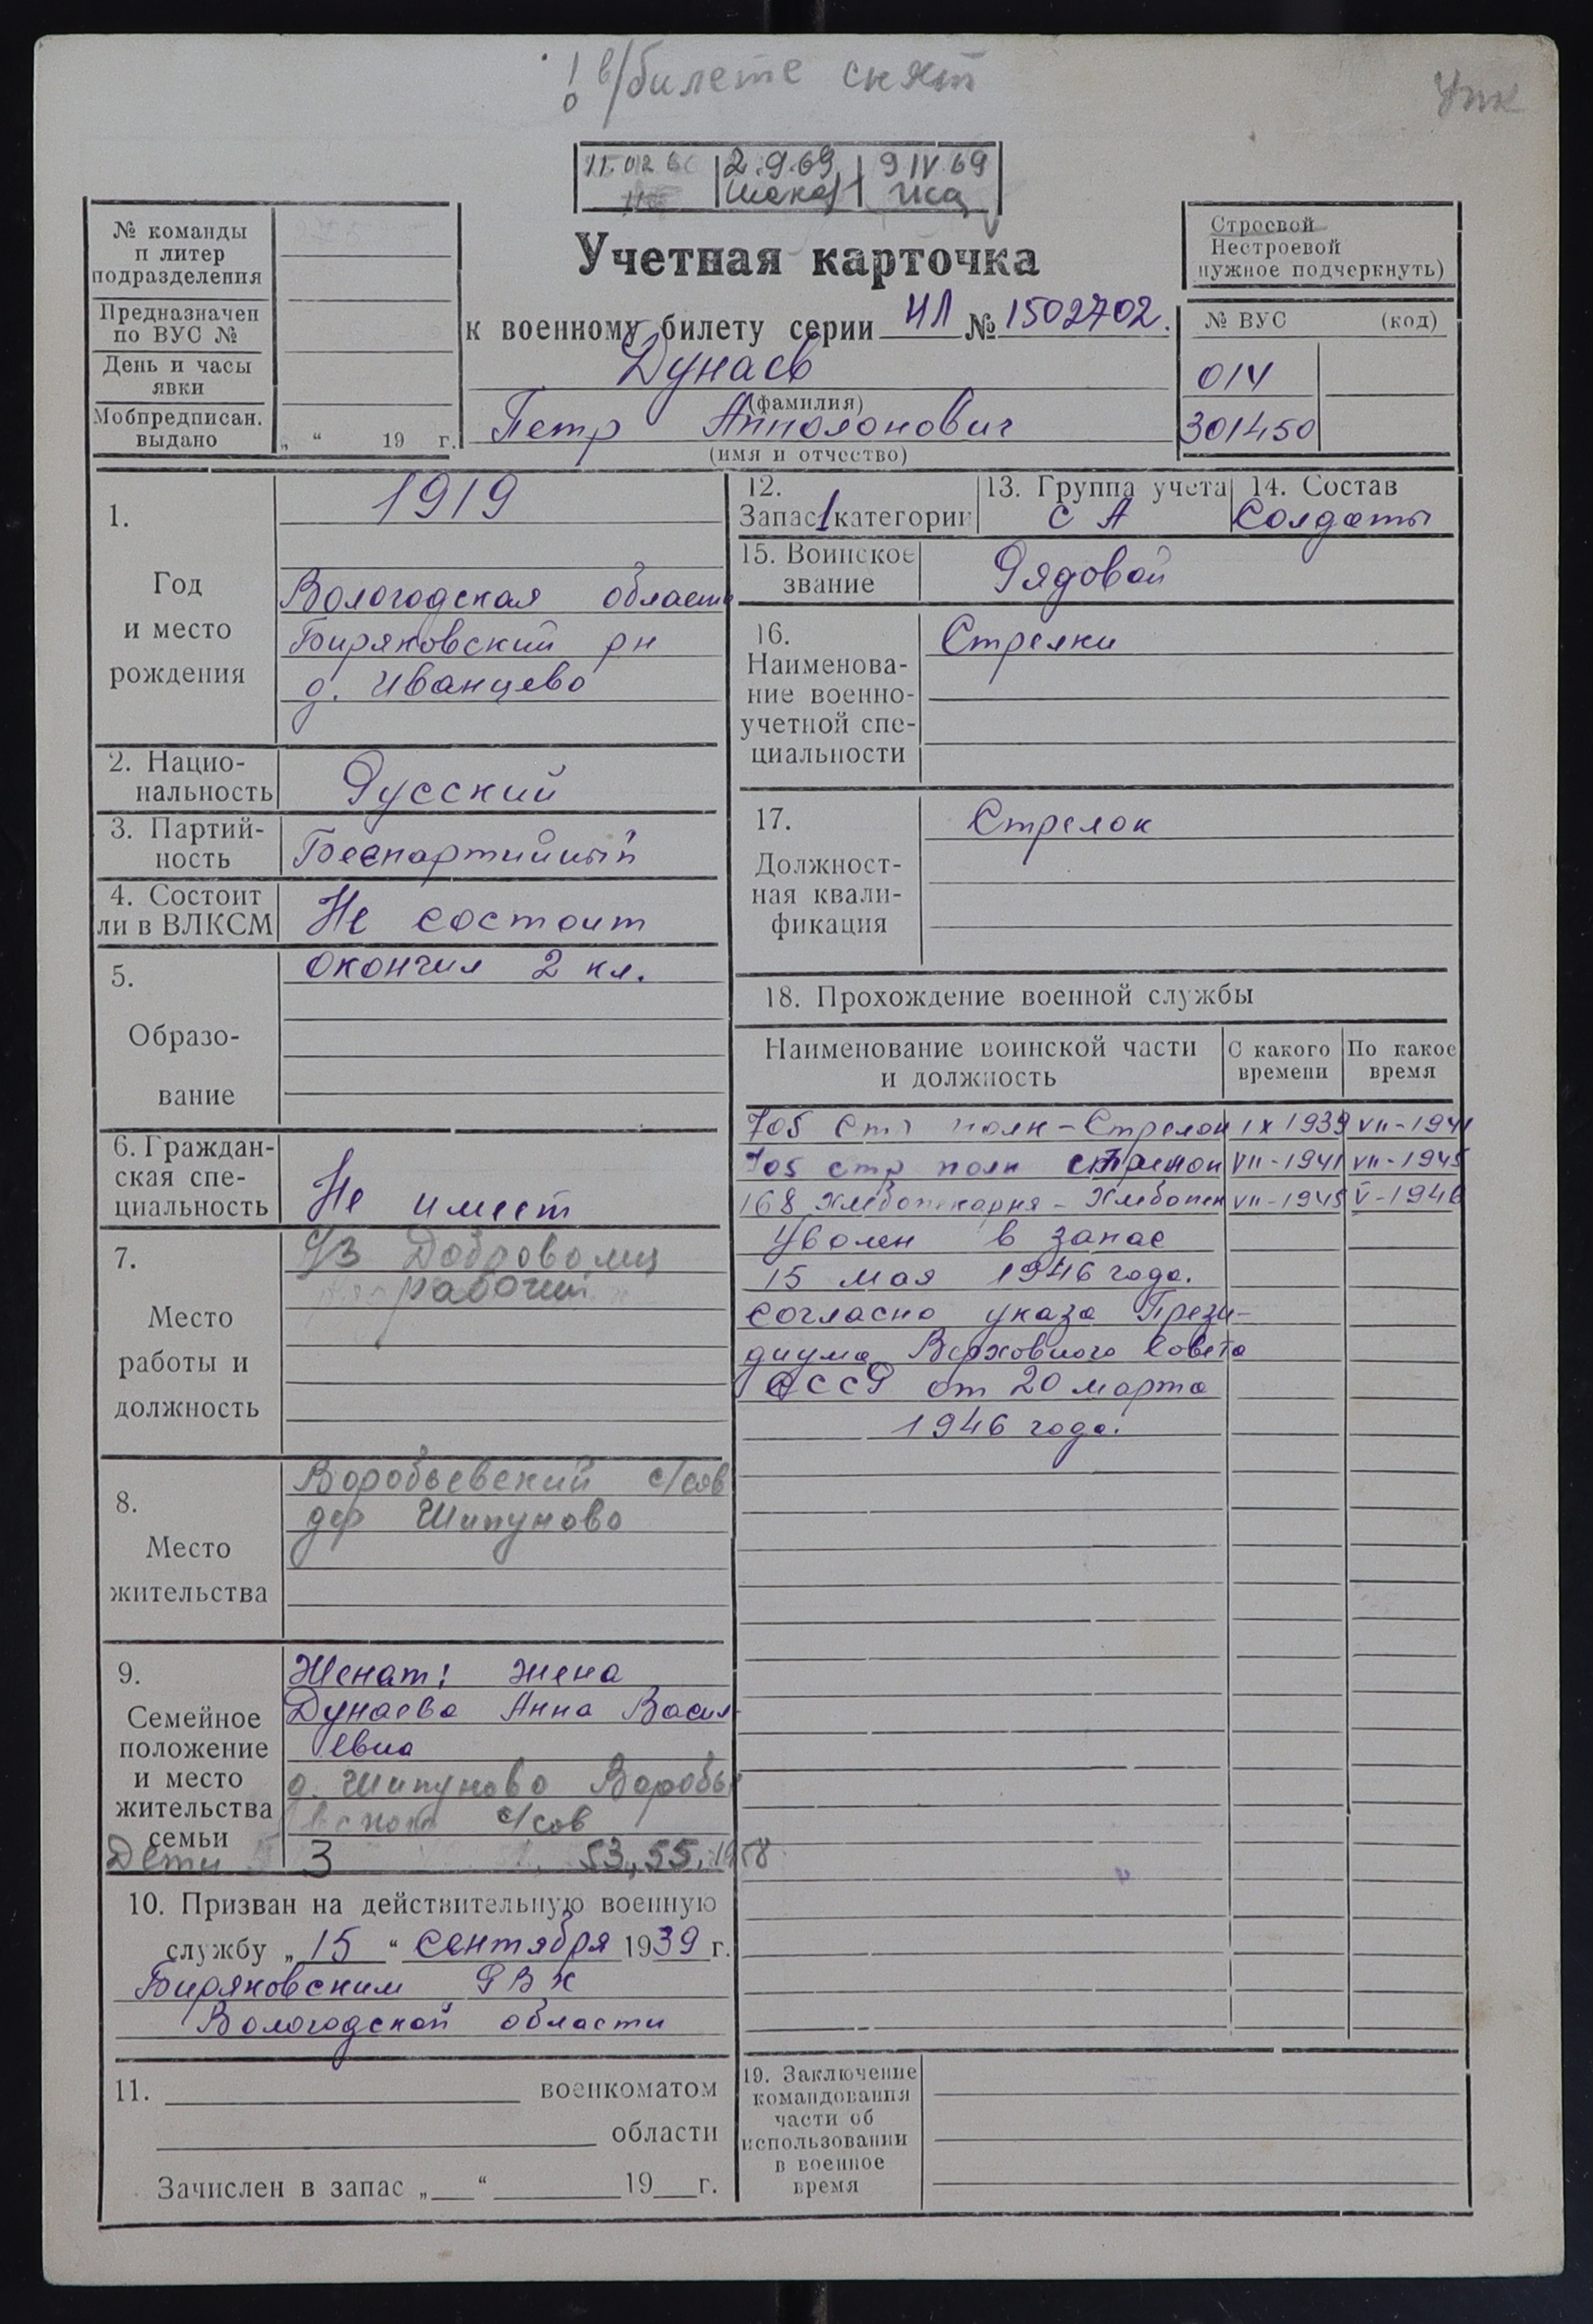 ! в/билете снят
Упк
11.02.6
2.9.69
9 IV 69
№ команды
и литер
подразделения
Предназначен
по ВУС №
День и часы
явки
Мобпредписан.
выдано
„ “ 19 г.
Учетная карточка
к военному билету серии НЛ № 1502702.
Дунаев
(фамилия)
Петр Апполонович
(имя и отчество)
Строевой
Нестроевой
нужное подчеркнуть)
№ ВУС (код)
014
301450
1.
Год
и место
рождения
1919
Вологодская область
Биряковский рн
д. Иванцево
2. Нацио-
нальность
Русский
3. Партий-
ность
Беспартийный
4. Состоит
ли в ВЛКСМ
Не состоит
5.
Образо-
вание
Окончил 2 кл.
6. Граждан-
ская спе-
циальность
Не имеет
7.
Место
работы и
должность
Доброволец
рабочий
8.
Место
жительства
Воробьевский с/сов
дер Шипуново
9.
Семейное
положение
и место
жительства
семьи
Женат: жена
Дунаева Анна Васил-
евна
д. Шипуново Воробь
с/сов
Дети 3 53, 55, 1958
10. Призван на действительную военную
службу „15“ сентября 1939 г.
Биряковским РВК
Вологодской области
11. военкоматом
области
Зачислен в запас „ “ 19 г.
12.
Запас 1 категории
13. Группа учета
С А
14. Состав
Солдаты
15. Воинское
звание
Рядовой
16.
Наименова-
ние военно-
учетной спе-
циальности
Стрелки
17.
Должност-
ная квали-
фикация
Стрелок
18. Прохождение военной службы
Наименование воинской части
и должность
С какого
времени
По какое
время
705 Стр полк - Стрелок IX 1939 VII-1941
705 стр полк стрелок VII-1941 VII-1945
168 Хлебопекарня - Хлебопек VII-1945 V-1946
Уволен в запас
15 мая 1946 года.
Согласно указа Прези-
диума Верховного Совета
СССР от 20 марта
1946 года.
19. Заключение
командования
части об
использовании
в военное
время